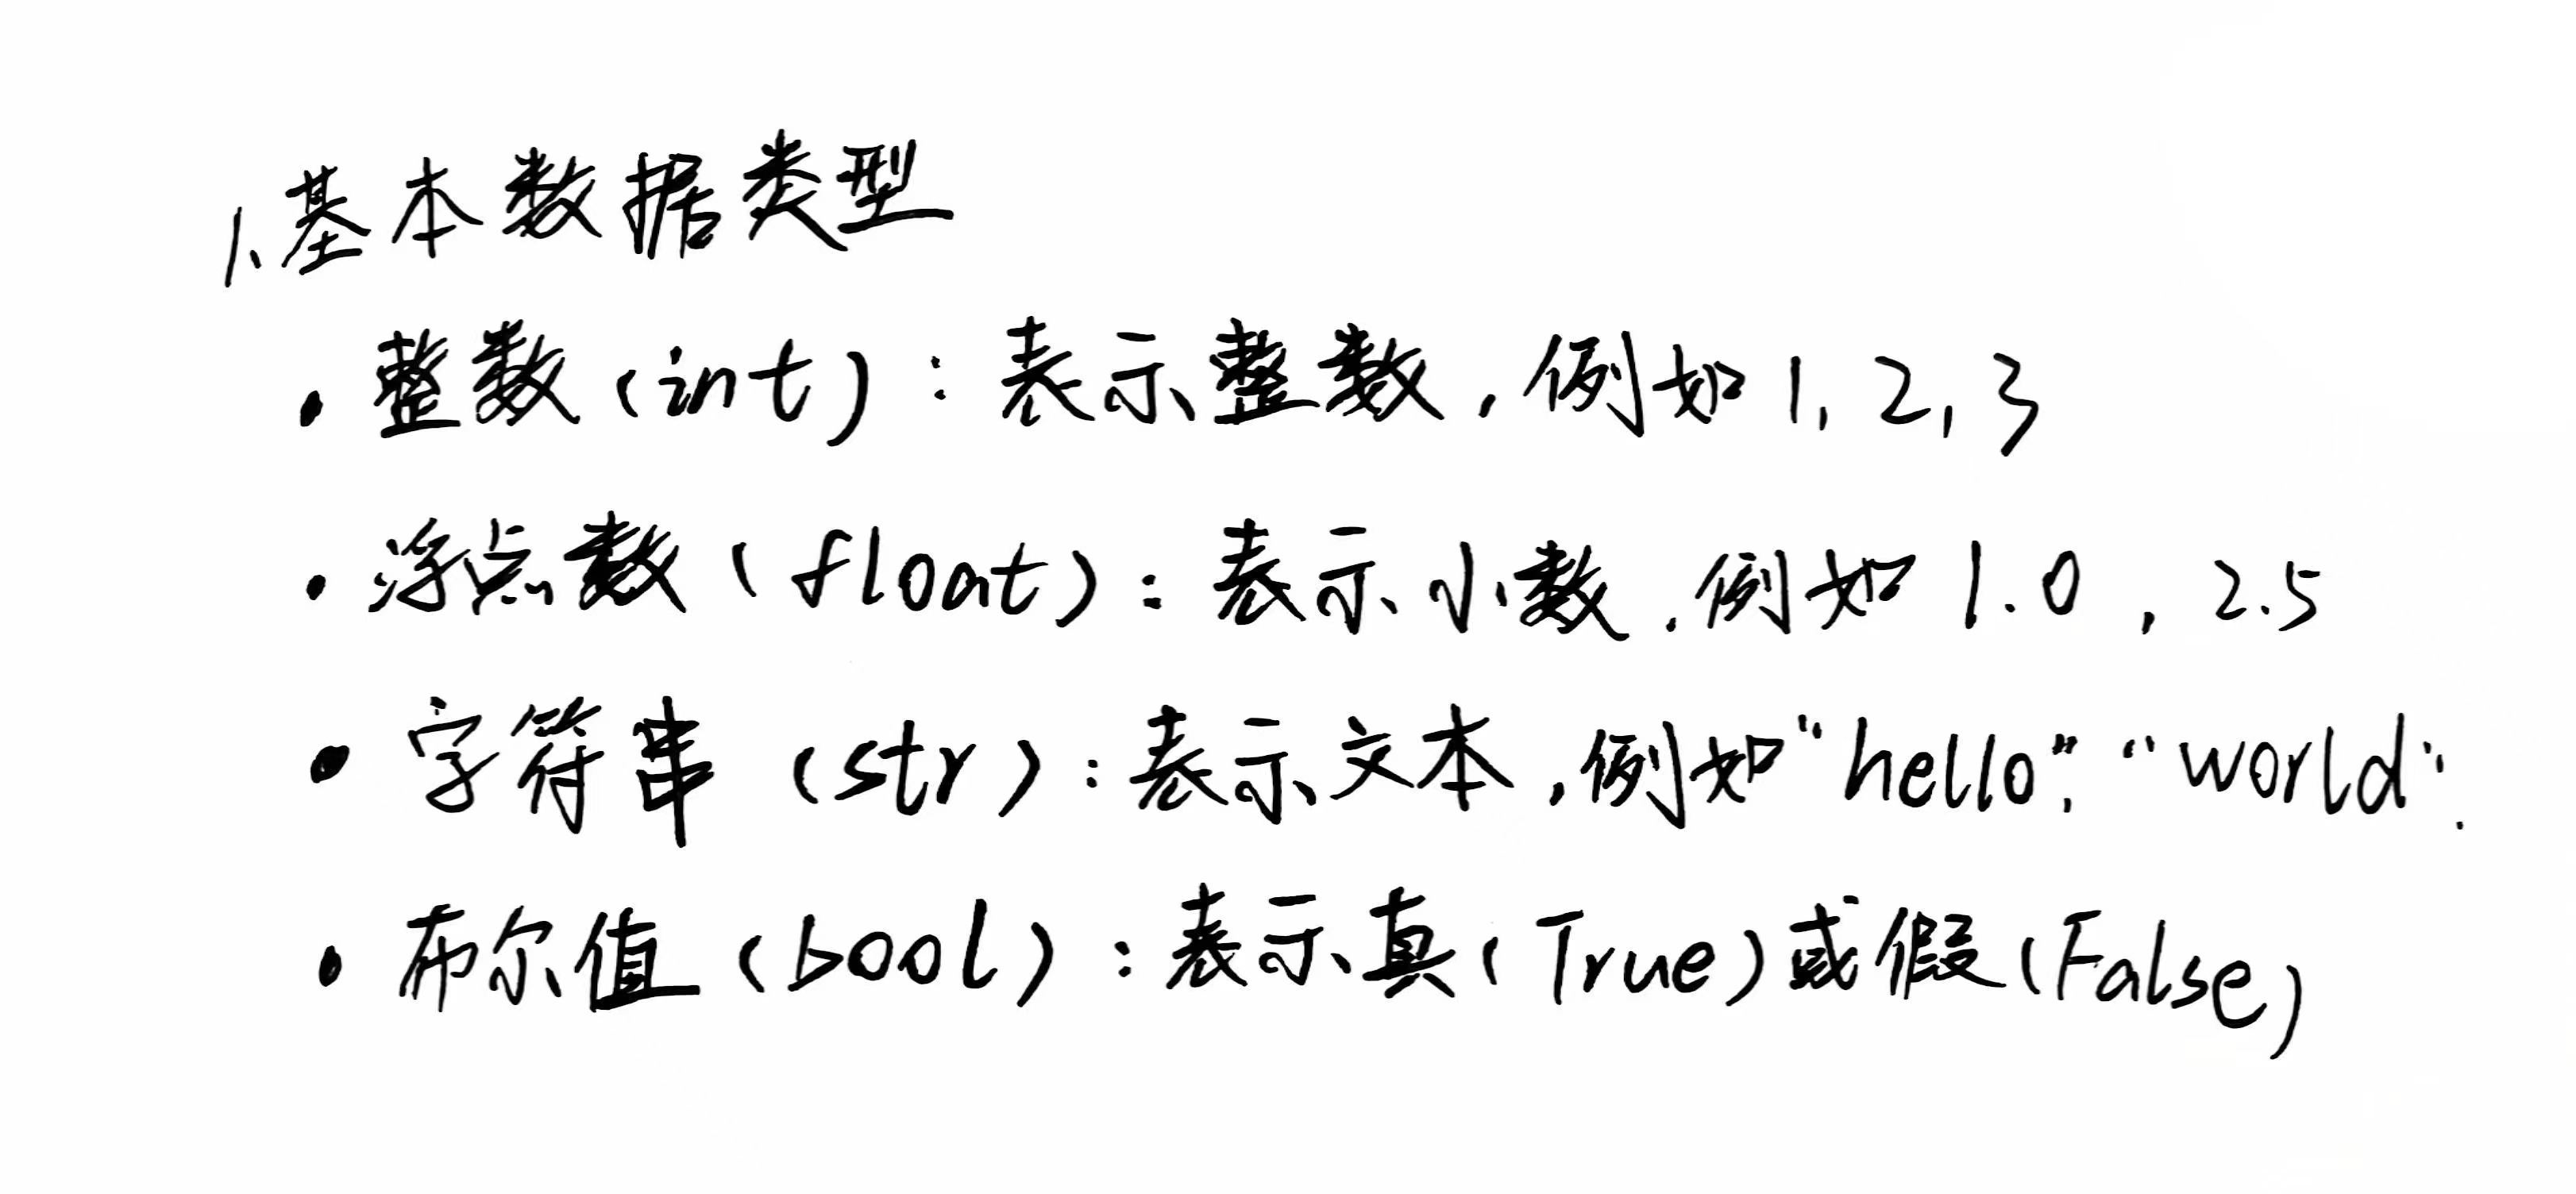 1、基本数据类型
• 整数(int)：表示整数，例如1, 2, 3
• 浮点数(float)：表示小数，例如1.0，2.5
• 字符串(str)：表示文本，例如“hello”，“world”.
• 布尔值(bool)：表示真(True)或假(False)